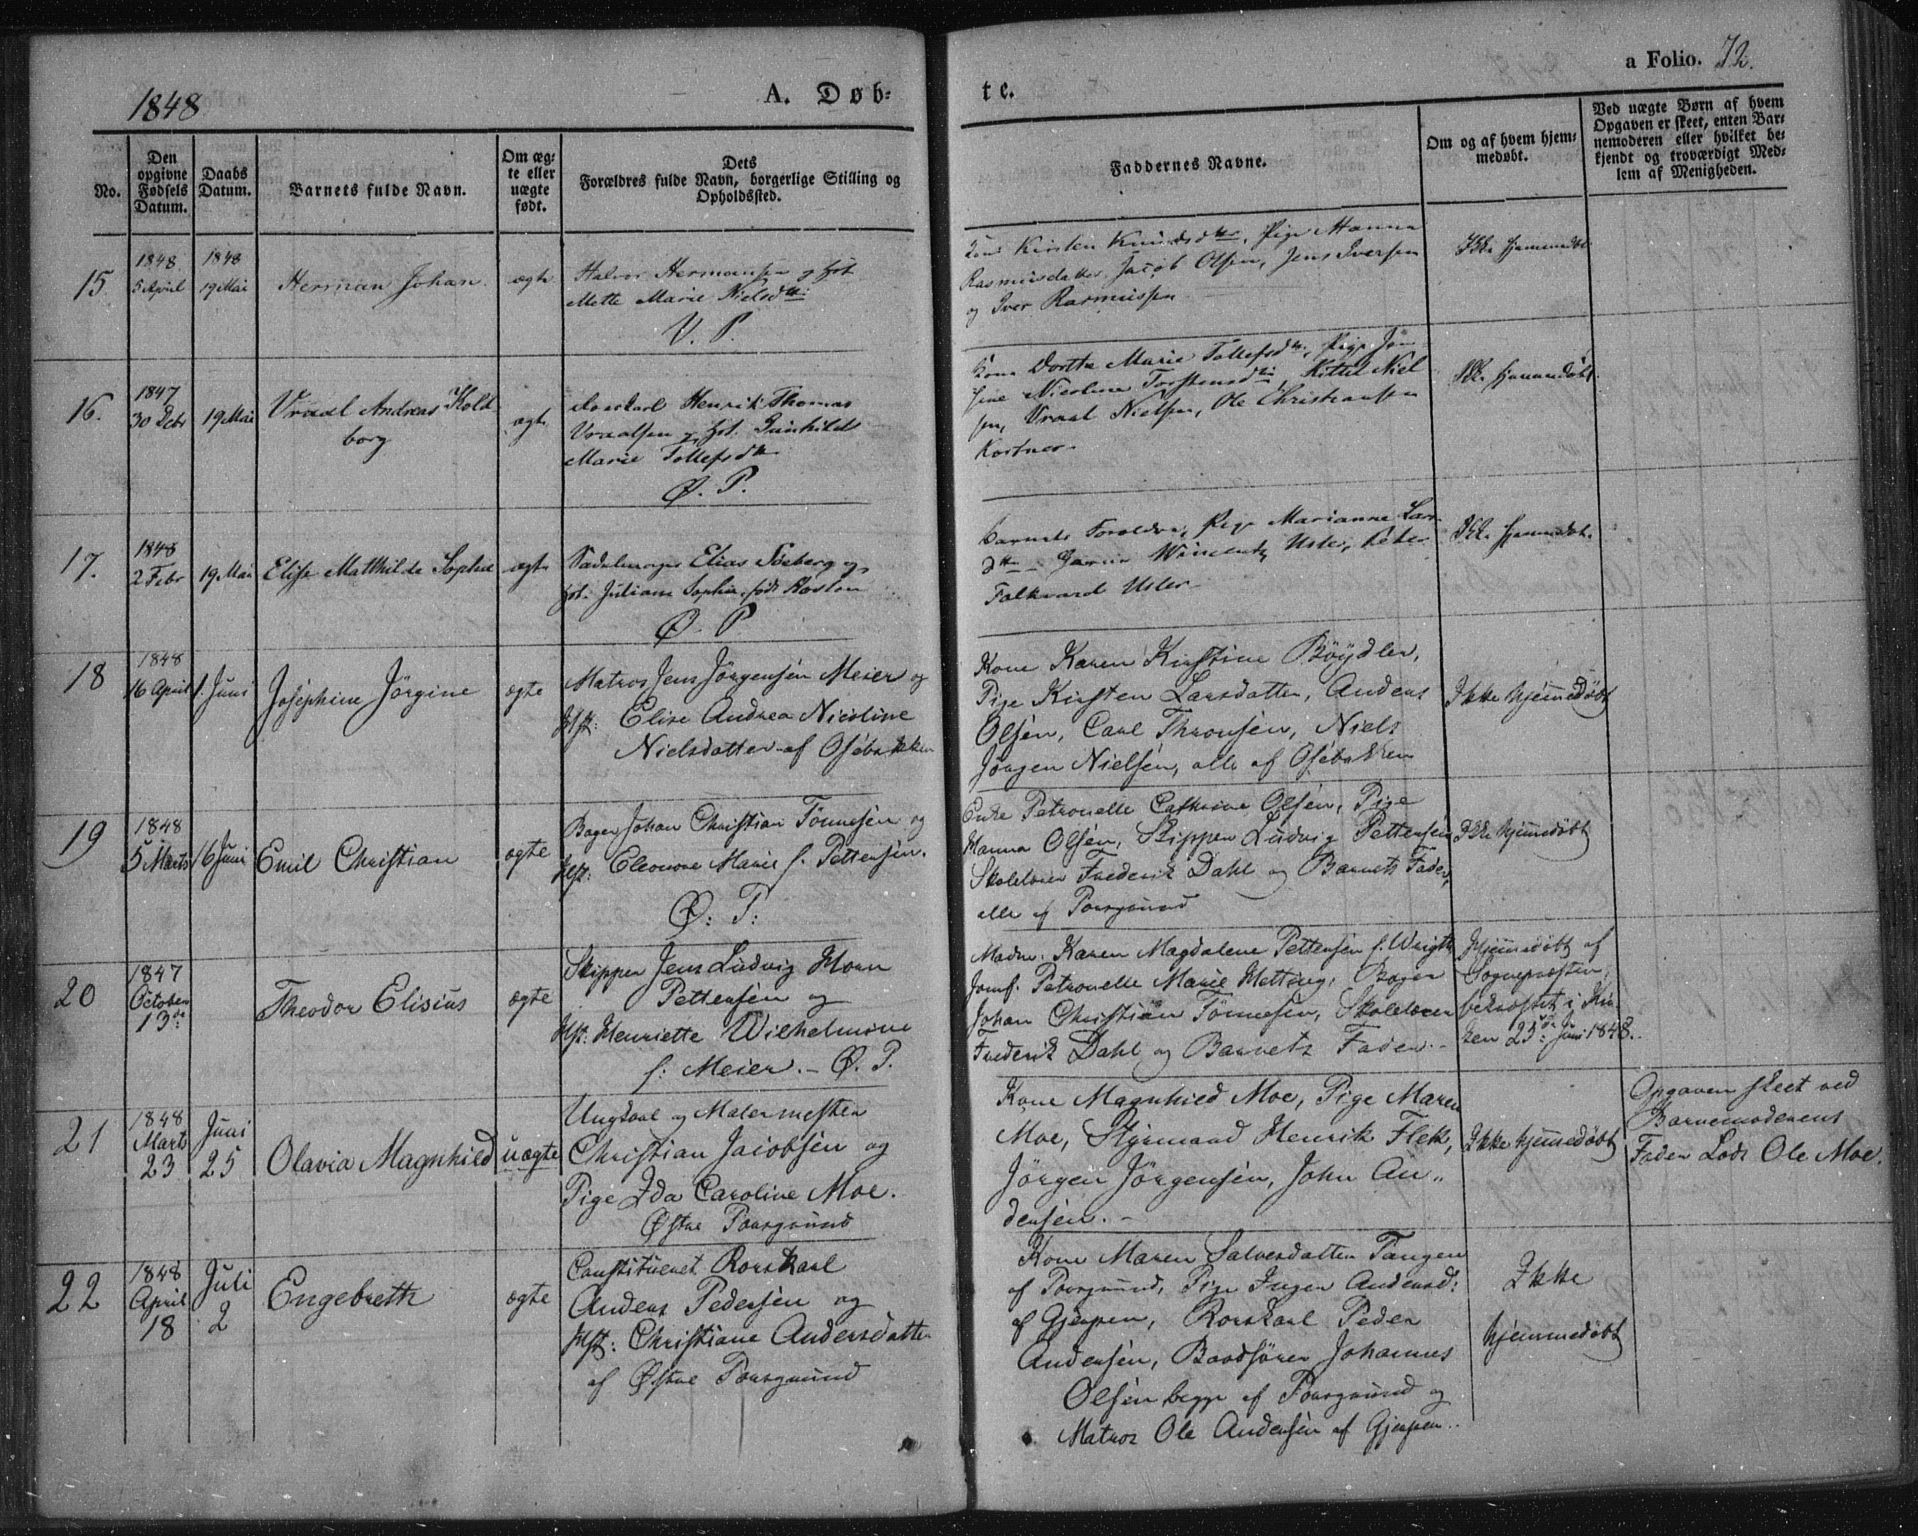 1848
A. Døb-
te.
a Folio. 72.
No.
Den
opgivne
Fødsels
Datum.
Daabs
Datum.
Barnets fulde Navn.
Om æg-
te eller
uægte
født.
Dets
Forældres fulde Navn, borgerlige Stilling og
Opholdssted.
Faddernes Navne.
Om og af hvem hjem-
medøbt.
Ved uægte Børn af hvem
Opgaven er skeet, enten Bar-
nemoderen eller hvilket be-
kjendt og troværdigt Med-
lem af Menigheden.
15
1848
5 April
1848
19 Mai
Herman Johan
ægte
Halvor Hermansen og Hst
Mette Marie Nielsdtr
V. P.
Kone Kirsten Knudsdtr, Pige Hanna
Rasmusdatter, Jacob Olsen, Jens Iversen
og Iver Rasmussen
Ikke hjemmedøbt
16.
1847
30 Debr
19 Mai
Vraal Andreas Kold
borg
ægte
Henrik Thomas
Vraalsen og Hst. Gunhild
Marie Tollefsdtr
Ø. P.
Kone Dorthe Marie Tollefsdtr, Pige Jør-
gine Nicoline Torstensdtr, Kittel Niel
sen, Vraal Nielsen, Ole Christiansen
Kortner.
Ikke hjemmedøbt
17.
1848
2 Febr
19 Mai
Elise Mathilde Sophie
ægte
Sadelmager Elias Søeberg og
Hst. Juliane Sophie, født
Ø. P
Barnets Forældre, Pige Marianne Lars
dtr Usler, Peter
Falkvard Usler
Ikke hjemmedøbt.
18
1848
16 April
1. Juni
Josephine Jörgine
ægte
Matros Jens Jörgensen Meier og
Hst: Elise Andrea Nicoline
Nielsdatter af Osebakken
Kone Karen Kirstine Böÿdler,
Pige Kirsten Larsdatter, Anders
Olsen, Carl Thronsen, Niels
Jörgen Nielsen, alle af Osebakken
Ikke hjemmedøbt
19
1848
5 Marts
16 Juni
Emil Christian
ægte
Bager Johan Christian Tönnesen og
Hst: Eleonore Marie f. Pettersen.
Ø: P:
Enke Petronelle Cathrine Olsen, Pige
Hanna Olsen, Skipper Ludvig Pettersen
Skolelærer Frederik Dahl og Barnets Fader,
alle af Porsgrund
Ikke hjemmedøbt
20
1847
October
13de
Theodor Elisius
ægte
Skipper Jens Ludvig Horn
Pettersen og
Hst: Henriette Wilhelmine
f: Meier. – Ø. P.
Madm. Karen Magdalene Pettersen f. Wrigth
Jomf. Petronelle Marie Hetting, Bager
Johan Christian Tönnesen, Skolelærer
Frederik Dahl og Barnets Fader.
Hjemmedøbt af
Sognepræsten,
bekræftet i Kir-
ken 23de Juni 1848.
21
1848
Mart
23
Juni
25
Olavia Magnhild
uægte
Ungkarl og Malermester
Christian Jacobsen og
Pige Ida Caroline Moe.
Østre Porsgrund
Kone Magnhild Moe, Pige Maren
Moe, Styrmand Henrik Flek,
Jörgen Jörgensen, John An„
dersen. –
Ikke hjemmedøbt
Opgaven skeet ved
Barnemoderens
Fader Lods Ole Moe.
22
1848
April
18
Juli
2
Engebreth
ægte
Constitueret Rorskarl
Anders Pedersen og
Hst: Christiane Andersdatter
af Østre Porsgrund
Kone Maren Salvesdatter Tangen
af Porsgrund, Pige Inger Andersd:
af Gjerpen, Rorskarl Peder
Andersen, Baadfører Johannes
Olsen begge af Porsgrund og
Matros Ole Andersen af Gjerpen.
Ikke
hjemmedøbt